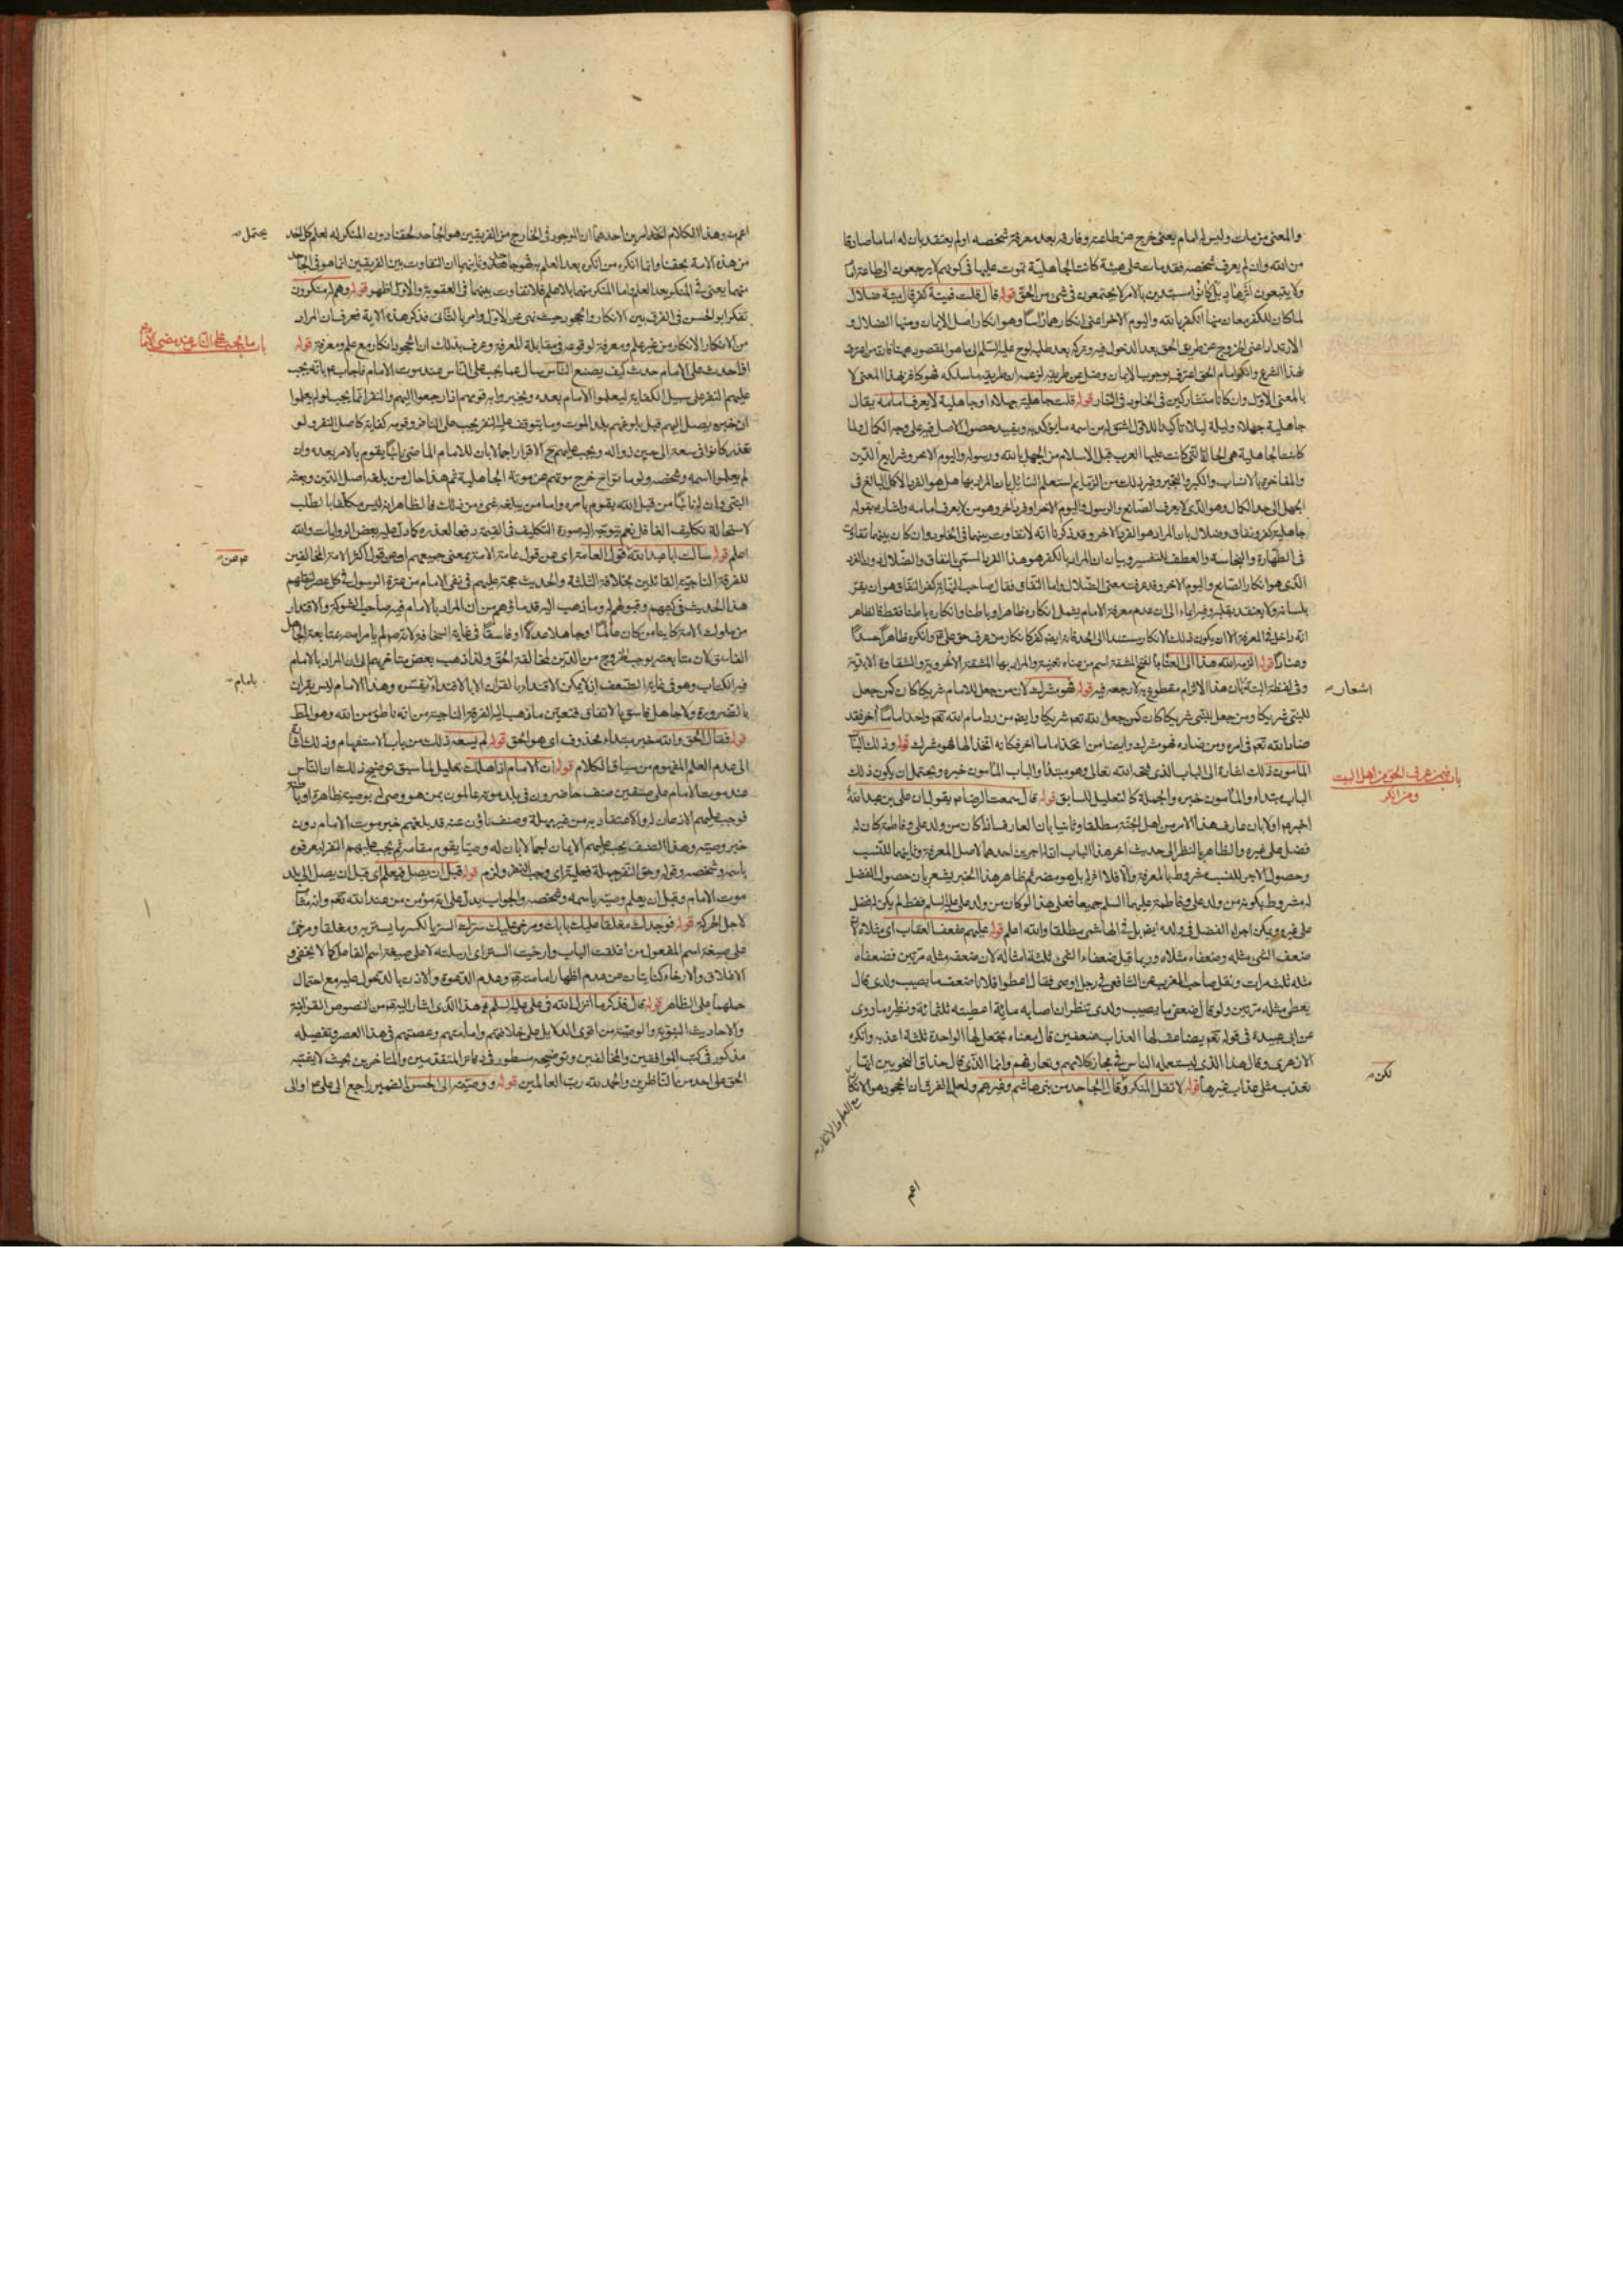 والمعنى من مات وليس له امام يعنى خرج عن طاعته وفارقه بعد معرفة شخصه او لم يعتقد بان له اماما صادقا
من الله وان لم يعرف شخصه فقد مات على هيئة كانت الجاهلية تموت عليها فى كونهم لا يرجعون الى طاعة امام
ولا يتبعون بل كانوا مستبدين بالامر لا يجتمعون فى شئ من الحق قوله قال قلت ميتة كفر قال ميتة ضلال
لما كان للكفر معان منها الكفر بالله واليوم الاخر اعنى انكارهما راسا وهو انكار اصل الايمان ومنها الضلال و
الارتداد اعنى الخروج عن طريق الحق بعد الدخول فيه وتركه بعد طلبه
بهذا الشرع وانكر امام الحق اعترف بوجوب الايمان وضل عن طريقه لزعمه ان طريقه ما سلكه فهو كافر بهذا المعنى لا
بالمعنى الاول وان كانا متشاركين فى الخلود فى النار قوله قلت جاهلية جهلاء او جاهلية لا يعرف امامه يقال
جاهلية جهلاء وليلة ليلاء تأكيدا للاول اشتق له من اسمه ما يؤكد به ويفيد حصول الاصل فيه على وجه الكمال ولما
كانت الجاهلية هى الحالة التى كانت عليها العرب قبل الاسلام من الجهل بالله ورسوله واليوم الاخر وشرايع الدين
والمفاخرة بالانساب والكبر والتجبر وغير ذلك من الرذايل استعلم السائل بان المراد بها هل هو الفرد الاكمل البالغ فى
الجهل الى حد الكمال وهو الذى لا يعرف الصانع والرسول واليوم الاخر او فرد آخر وهو من لا يعرف امامه واشار ع بقوله
جاهلية كفر ونفاق وضلال بان المراد هو الفرد الاخر وقد ذكرنا انه لا تفاوت بينهما فى الخلود وان كان بينهما تفاوت
فى الطهارة والنجاسة والعطف للتفسير وبيان ان المراد بالكفر هو هذا الفرد المسمى بالنفاق والضلال
الذى هو انكار الصانع واليوم الاخر وقد عرفت معنى الضلال واما النفاق فقال صاحب النهاية كفر النفاق هو ان يقر
بلسانه ولا يعتقد بقلبه وفيه ايماء الى ان عدم معرفة الامام يشمل انكاره ظاهرا وباطنا وانكاره باطنا فقط فالظاهر
وعنادا قوله الزمه الله هذا الى العناء بالفتح المشقة اسم من عناه تعنية والمراد بها المشقة الاخروية والشقاوة الابدية
وفى لفظة البتة بان هذا الالزام مقطوع به لا رجعة فيه قوله فهو مشرك لان من جعل للامام شريكا كان كمن جعل
للنبى شريكا ومن جعل للنبى شريكا كان كمن جعل لله تعم شريكا وايضا من رد امام الله تعم واخذ اماما اخر فقد
ضاد الله تعم فى امره ومن ضاده فهو مشرك وايضا من اتخذ اماما اخر فكانه اتخذ الها فهو مشرك قوله وذلك الباب
المأمون ذلك اشارة الى الباب الذى فتحه الله تعالى وهو مبتدأ والباب المأمون خبره ويحتمل ان يكون ذلك
الباب مبتداء والمأمون خبره والجملة كالتعليل للسابق قوله قال سمعت الرضا ع يقول ان على بن عبد الله
اخبر ع اولا بان عارف هذا الامر من اهل الجنة مطلقا وثانيا بان العارف اذا كان من ولد على وفاطمة كان له
فضل على غيره والظاهر بالنظر الى حديث اخر هذا الباب ان له اجرين احدهما لاصل المعرفة وثانيهما للنسب
وحصول الاجر للنسب مشروط بالمعرفة والا فلا اجر له بل هو مضر ثم ظاهر هذا الخبر يشعر بان حصول الفضل
له مشروط بكونه من ولد على وفاطمة عليهما السلم جميعا فعلى هذا لو كان من ولد على عليه السلم فقط لم يكن له فضل
على غيره ويمكن اجراء الفضل فى ولده ايضا بل فى الهاشمى مطلقا والله اعلم قوله عليهم ضعفا العقاب اى مثلاه
ضعف الشئ مثله وضعفاه مثلاه وربما قيل ضعفاء الشئ ثلثة امثاله لان ضعفه مثله مرتين فضعفاه
مثله ثلث مرات ونقل صاحب المغرب عن الشافعى فى رجل اوصى فقال اعطوا فلانا ضعف ما يصيب ولدى قال
يعطى مثله مرتين ولو قال ضعفى ما يصيب ولدى نظر ان اصابه مائة اعطيته ثلثمائة ونظيره ما روى
عن ابى عبيدة فى قوله تعم يضاعف لها العذاب ضعفين قال معناه يجعل لها الواحدة ثلثة اعذبه وانكره
الازهرى وقال هذا الذى يستعمله الناس فى مجاز كلامهم وتعارفهم وانما الذى قال حذاق النحويين انها
تعذب مثلى عذاب غيرها قوله لا تقل المنكر وقال الجاحد من بنى هاشم وغيرهم ولعل الفرق ان الجحود هو الانكار
مع العلم والانكار
اعم
اشعار
باب فيمن عرف الحق من اهل البيت
ومن انكر
لكن
اعم منه وهذا الكلام احد امرين احدهما ان الموجود فى الخارج من الفريقين هو الجاحد لحقنا دون المنكر له لعلم كل احد
من هذه الامة بحقنا وانما انكره من انكره بعد العلم به فهو جاحد وثانيهما ان التفاوت بين الفريقين انما هو فى الجاحد
منهما يعنى فى المنكر بعد العلم واما المنكر منهما بلا علم فلا تفاوت بينهما فى العقوبة والاول اظهر قوله وهم له منكرون
تفكر ابو الحسن فى الفرق بين الانكار والجحود حيث نهى عن الاول وامر بالثانى فذكر هذه الاية فعرف ان المراد
من الانكار الانكار من غير علم ومعرفة لوقوعه فى مقابلة المعرفة وعرف بذلك ان الجحود انكار مع علم ومعرفة قوله
اذا حدث على الامام حدث كيف يصنع الناس سال عما يجب على الناس عند موت الامام فاجاب ع بانه يجب
عليهم النفر على سبيل الكفاية ليعلموا الامام بعده ويخبروا به قومهم اذا رجعوا اليهم والنفر انما يجب لو لم يعلموا
ان خبره يصل اليهم قبل بلوغهم بلد الموت وما يتوقف عليه النفر يجب على النافر وقومه كفاية كاصل النفر ولو
تعذر كانوا فى سعة الى حين زواله ويجب عليهم مع الاقرار اجمالا بان للامام الماضى نائبا يقوم بالامر بعده وان
لم يعلموا اسمه وشخصه ولو مات خرج موتهم عن موتة الجاهلية ثم هذا حال من بلغه اصل الدين وبعثة
النبى وان له نائبا من قبل الله يقوم بامره واما من لم يبلغه شئ من ذلك فالظاهر انه ليس مكلفا بالطلب
لاستحالة تكليف الغافل نعم يتوجه اليه صورة التكليف فى القيمة دفعا لعذره كما دل عليه بعض الروايات والله
اعلم قوله سالت ابا عبد الله ع قول العامة اى عن قول عامة الامة بمعنى جميعهم او عن قول اكثر الامة المخالفين
للفرقة الناجية القائلين بخلافة الثلثة والحديث حجة عليهم فى نفى الامام من عترة الرسول فى كل عصر
هذا الحديث فى كتبهم وقبولهم له وما ذهب اليه قدماؤهم من ان المراد بالامام فيه صاحب الشوكة والاقتدار
من ملوك الامة كاينا من كان عالما او جاهلا عدلا او فاسقا فى غاية السخافة
الفاسق لان متابعته يوجب الخروج من الدين لمخالفة الحق ولذا ذهب بعض متاخريهم الى ان المراد بالامام
فيه الكتاب وهو فى غاية الضعف اذ لا يمكن الاقتداء بالقران الا بالاقتداء بمفسره وهذا الامام ليس بقران
بالضرورة ولا جاهل فاسق بالاتفاق فتعين ما ذهب اليه الفرقة الناجية من انه ناطق من الله وهو المط
قوله فقال الحق والله خبر مبتداء محذوف اى هو الحق قوله لم يسعه ذلك من باب الاستفهام وذلك اشارة
الى عدم العلم المفهوم من سياق الكلام قوله ان الامام اذا هلك تعليل لما سبق توضيح ذلك ان الناس
عند موت الامام على صنفين صنف حاضرون فى بلد موته عالمون بمن هو وصى له بوصية ظاهرة او باطنة
فوجب عليهم الاذعان له والاعتقاد به من غير مهلة وصنف ناؤن عنه قد بلغهم خبر موت الامام دون
خبر وصيته وهذا الصنف يجب عليهم الايمان اجمالا بان له وصيا يقوم مقامه ثم يجب عليهم النفر ليعرفوه
باسمه وشخصه وقوله وحق النفر جملة فعلية اى وجب النفر ولزم قوله قبل ان يصل فيعلم اى قبل ان يصل الى بلد
موت الامام وقبل ان يعلم وصيه باسمه وشخصه والجواب يدل على انه مؤمن من عند الله تعم وانه مثاب
لاجل الحركة قوله فوجدك مغلقا عليك بابك ومرخى عليك سترك الستر بالكسر ما يستر به ومغلقا ومرخى
على صيغة اسم المفعول من اغلقت الباب وارخيت الستر اى ارسلته لا على صيغة اسم الفاعل كما لا يخفى و
الاغلاق والارخاء كنايتان عن عدم اظهار امامته وعدم الدعوة والاذن بالدخول عليه مع احتمال
حملهما على الظاهر قوله قال فذكر ما انزل الله فى على عليه السلم هذا الذى اشار اليه ع من النصوص القرآنية
والاحاديث النبوية والوصية من اقوى الدلايل على خلافتهم وامامتهم وعصمتهم فى هذا العصر وتفصيله
مذكور فى كتب الموافقين والمخالفين وتوضيحه مسطور فى دفاتر المتقدمين والمتاخرين بحيث لا يشتبه
الحق على احد من الناظرين والحمد لله رب العالمين قوله ووصيته الى الحسن الضمير راجع الى على ع او الى
يحتمل
باب ما يجب على الناس عند مضى الامام
بامام